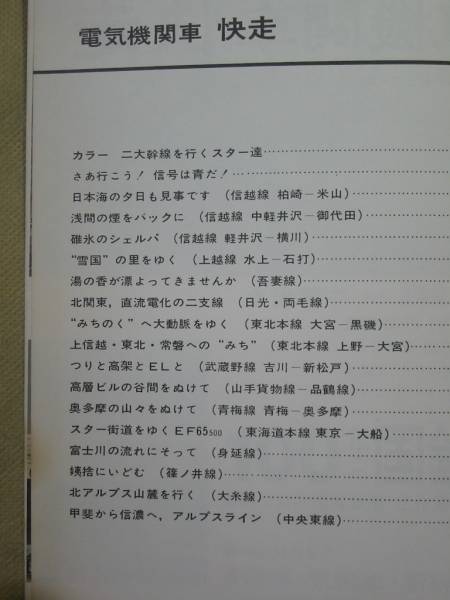 電気機関車 快走
カラー 二大幹線を行くスター達……………………………
さあ行こう! 信号は青だ! …………………………………
日本海の夕日も見事です (信越線 柏崎－米山)……………
浅間の煙をバックに (信越線 中軽井沢－御代田)…………
碓氷のシェルパ (信越線 軽井沢－横川)……………………
“雪国”の里をゆく (上越線 水上－石打)……………………
湯の香が漂よってきませんか (吾妻線)………………………
北関東，直流電化の二支線 (日光・両毛線)…………………
“みちのく”へ大動脈をゆく (東北本線 大宮－黒磯)………
上信越・東北・常磐への“みち” (東北本線 上野－大宮)…
つりと高架とELと (武蔵野線 吉川－新松戸)………………
高層ビルの谷間をぬけて (山手貨物線－品鶴線)……………
奥多摩の山々をぬけて (青梅線 青梅－奥多摩)……………
スター街道をゆくEF65500 (東海道本線 東京－大船)………
富士川の流れにそって (身延線)………………………………
姨捨にいどむ (篠ノ井線)………………………………………
北アルプス山麓を行く (大糸線)………………………………
甲斐から信濃へ，アルプスライン (中央東線)………………